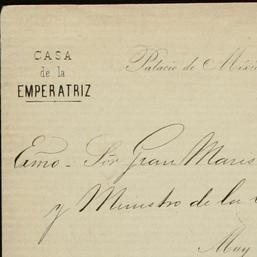 CASA
de la
EMPERATRIZ
Palacio de
Exmo. Sor. Gran
y Ministro de la
Muy